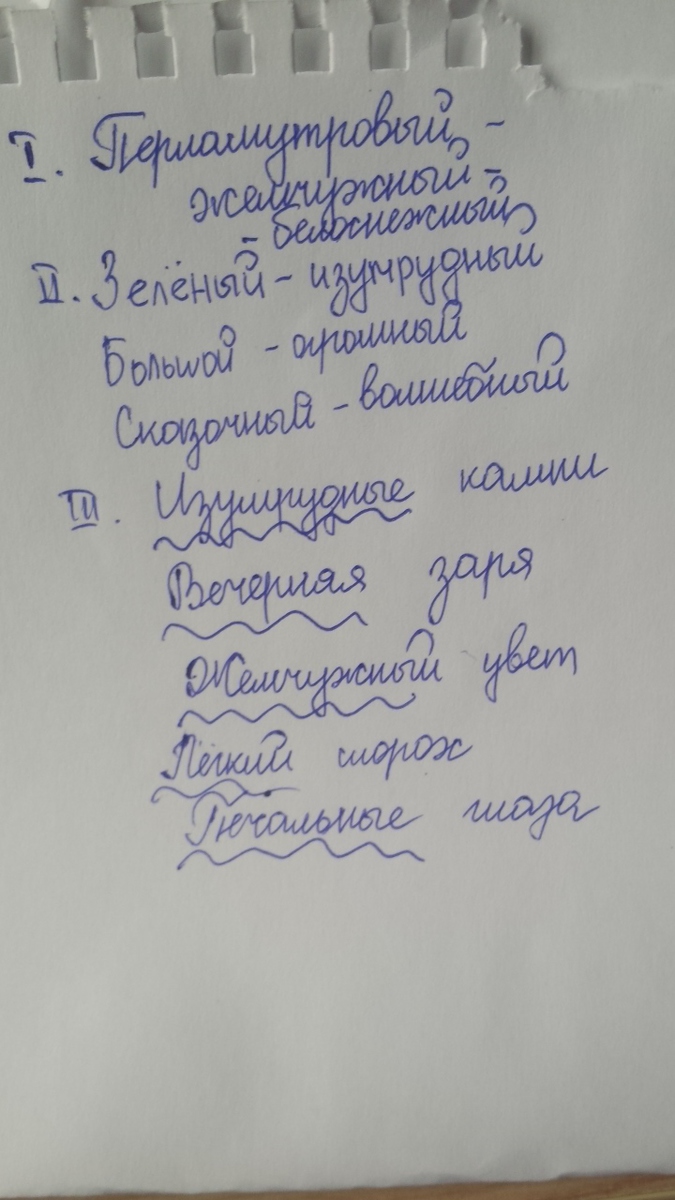 I. Перламутровый -
жемчужный -
- белоснежный
II. Зелёный - изумрудный
Большой - огромный
Сказочный - волшебный
III. Изумрудные камни
Вечерная заря
Жемчужный цвет
Лёгкий шорох
Печальные глаза